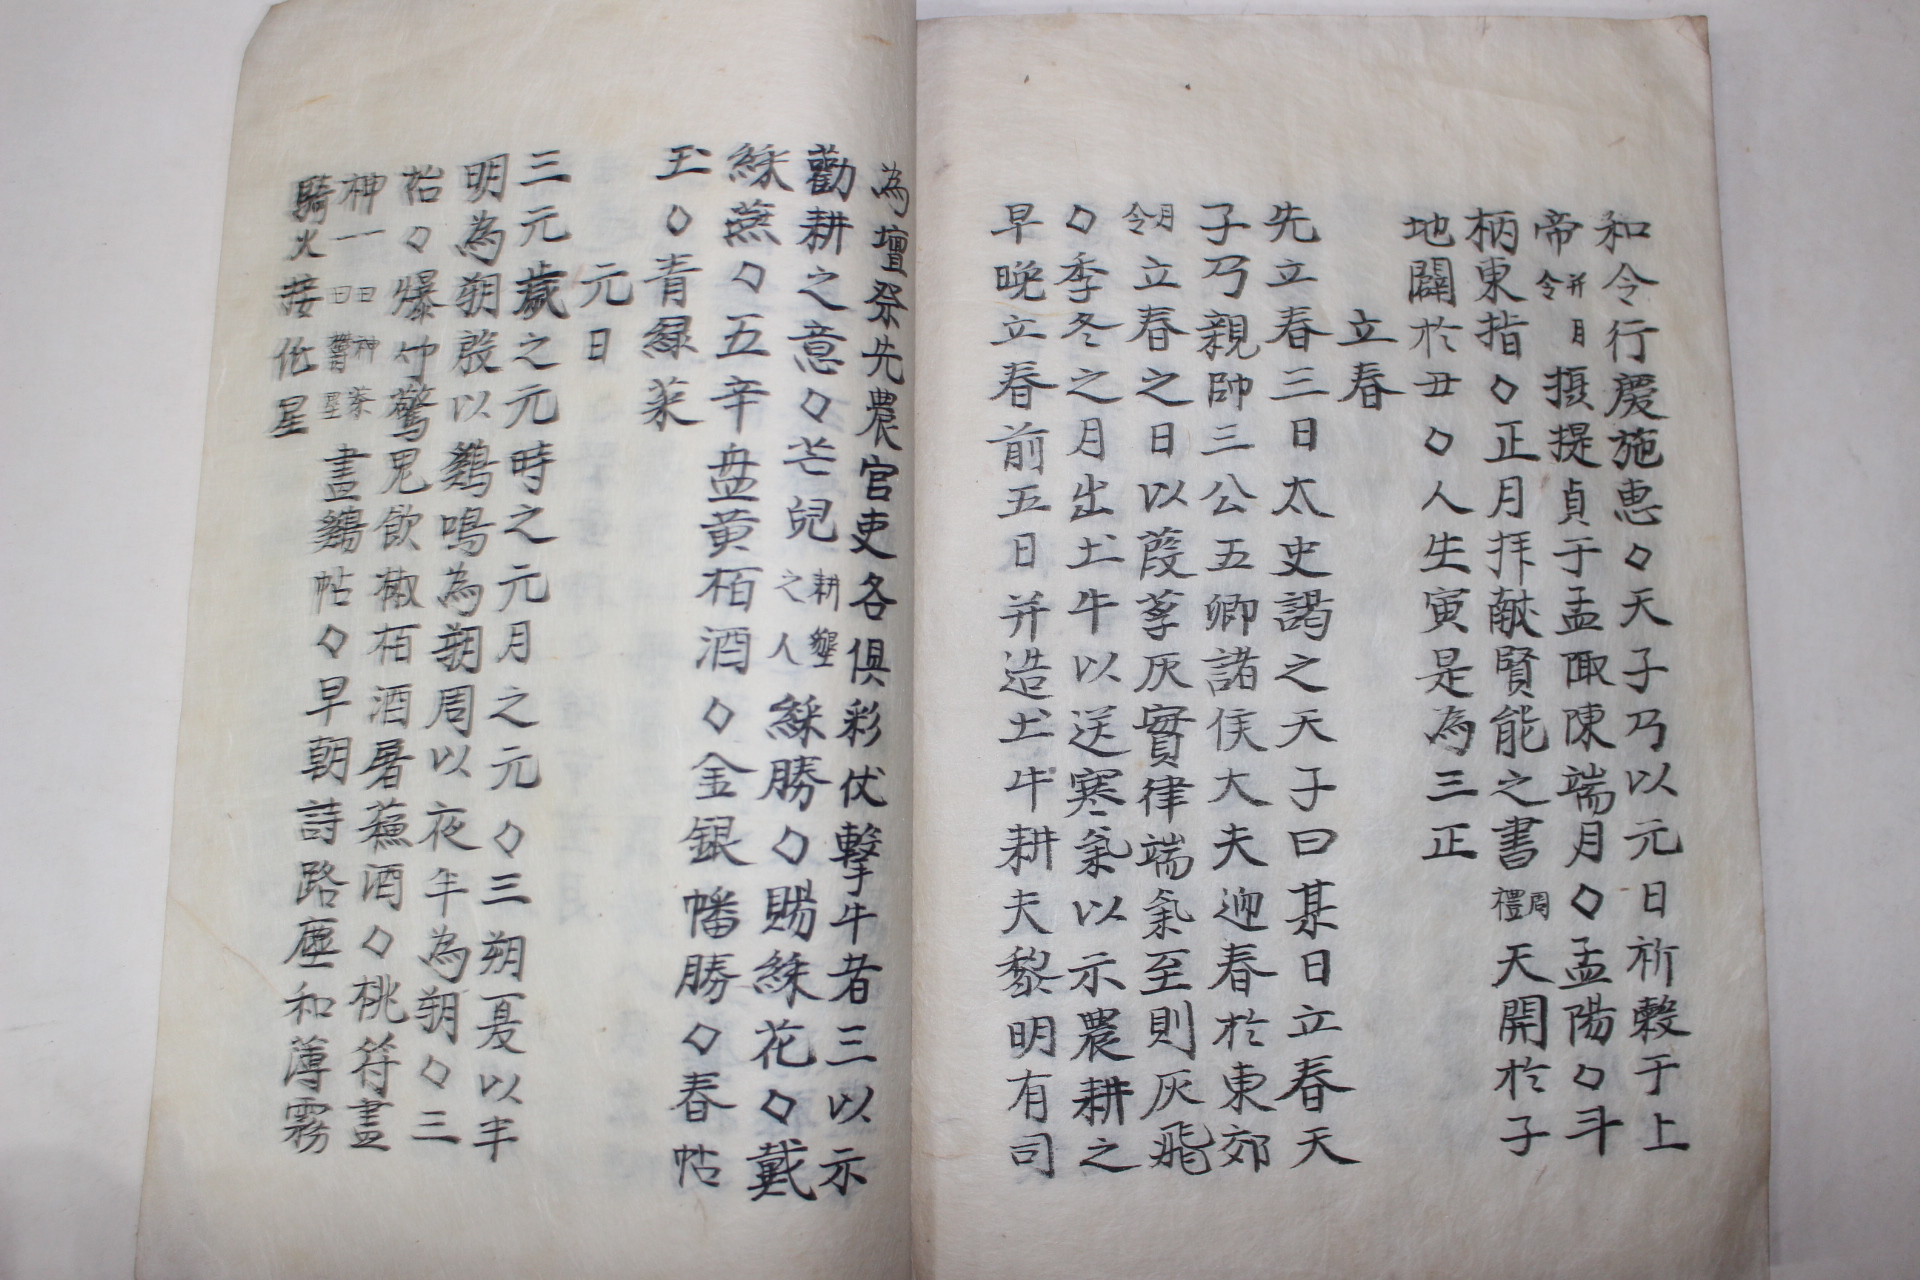 和令行慶施惠◇天子乃以元日祈穀于上
帝月令并摂提貞于孟陬陳端月◇孟陽◇斗
柄東指◇正月拜献賢能之書周禮天開於子
地闢於丑◇人生寅是為三正
立春
先立春三日太史謁之天子曰某日立春天
子乃親帥三公五卿諸侯大夫迎春於東郊
月令立春之日以葭莩灰實律端氣至則灰飛
◇季冬之月出土牛以送寒氣以示農耕之
早晚立春前五日并造土牛耕夫黎明有司
為壇祭先農官吏各俱彩仗擊牛者三以示
勸耕之意◇芒兒耕墾之人綵勝◇賜綵花◇戴
綵燕◇五辛盘黄栢酒◇金銀幡勝◇春帖
玉◇青緑菜
元日
三元歲之元時之元月之元◇三朔夏以平
明為朔殷以鷄鳴為朔周以夜半為朔◇三
始◇爆竹驚鬼飲椒栢酒屠蘇酒◇桃符畫
神一曰神荼一曰鬱壘畫鷄帖◇早朝詩路塵和薄霧
騎火接低星